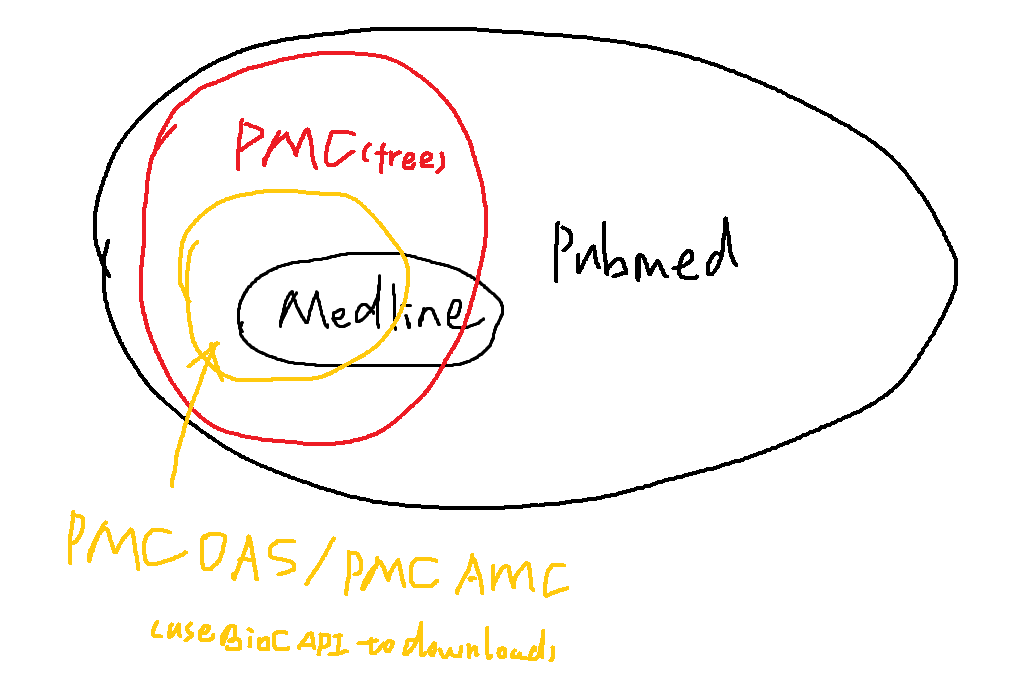 PMC(free)
Pubmed
Medline
PMC OAS/PMC AMC
(use BioC API to download)